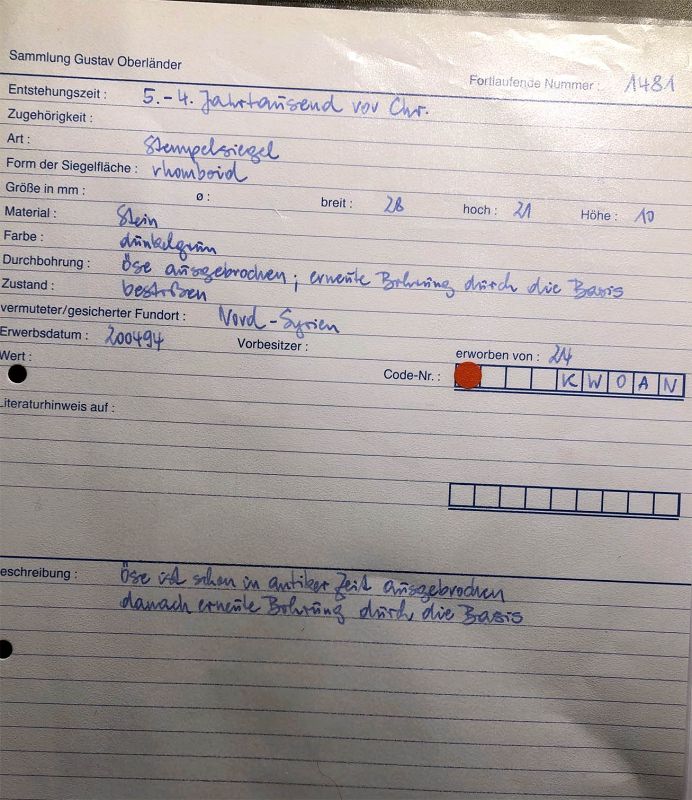 Sammlung Gustav Oberländer
Fortlaufende Nummer : 1481
Entstehungszeit : 5.-4. Jahrtausend vor Chr.
Zugehörigkeit :
Art : Stempelsiegel
Form der Siegelfläche : rhomboid
Größe in mm : ø : breit : 28 hoch : 21 Höhe : 10
Material : Stein
Farbe : dunkelgrün
Durchbohrung : Öse ausgebrochen; erneute Bohrung durch die Basis
Zustand : bestoßen
vermuteter/gesicherter Fundort : Nord-Syrien
Erwerbsdatum : 200494 Vorbesitzer : erworben von : 24
Wert : Code-Nr. : K W O A N
Literaturhinweis auf :
eschreibung : Öse ist schon in antiker Zeit ausgebrochen
danach erneute Bohrung durch die Basis